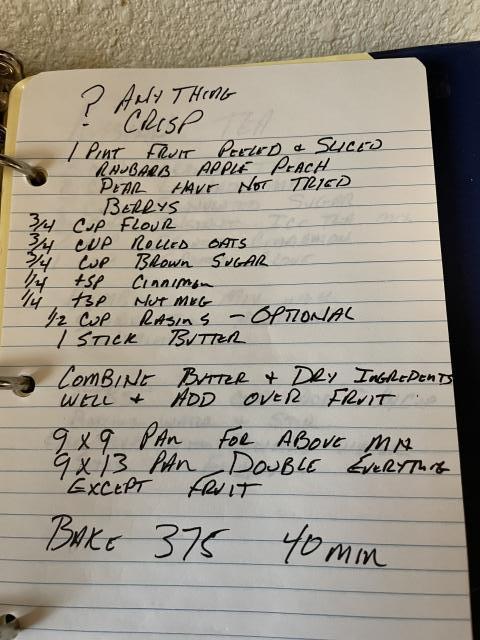 ? ANYTHING
CRISP
1 PINT FRUIT PEELED & SLICED
RHUBARB APPLE PEACH
PEAR HAVE NOT TRIED
BERRYS
3/4 CUP FLOUR
3/4 CUP ROLLED OATS
3/4 CUP BROWN SUGAR
1/4 tSP CINNIMON
1/4 tSP NUTMUG
1/2 CUP RASINS - OPTIONAL
1 STICK BUTTER
COMBINE BUTTER & DRY INGREDENTS
WELL & ADD OVER FRUIT
9 X 9 PAN FOR ABOVE
9 X 13 PAN DOUBLE EVERYTHING
EXCEPT FRUIT
BAKE 375 40 MIN